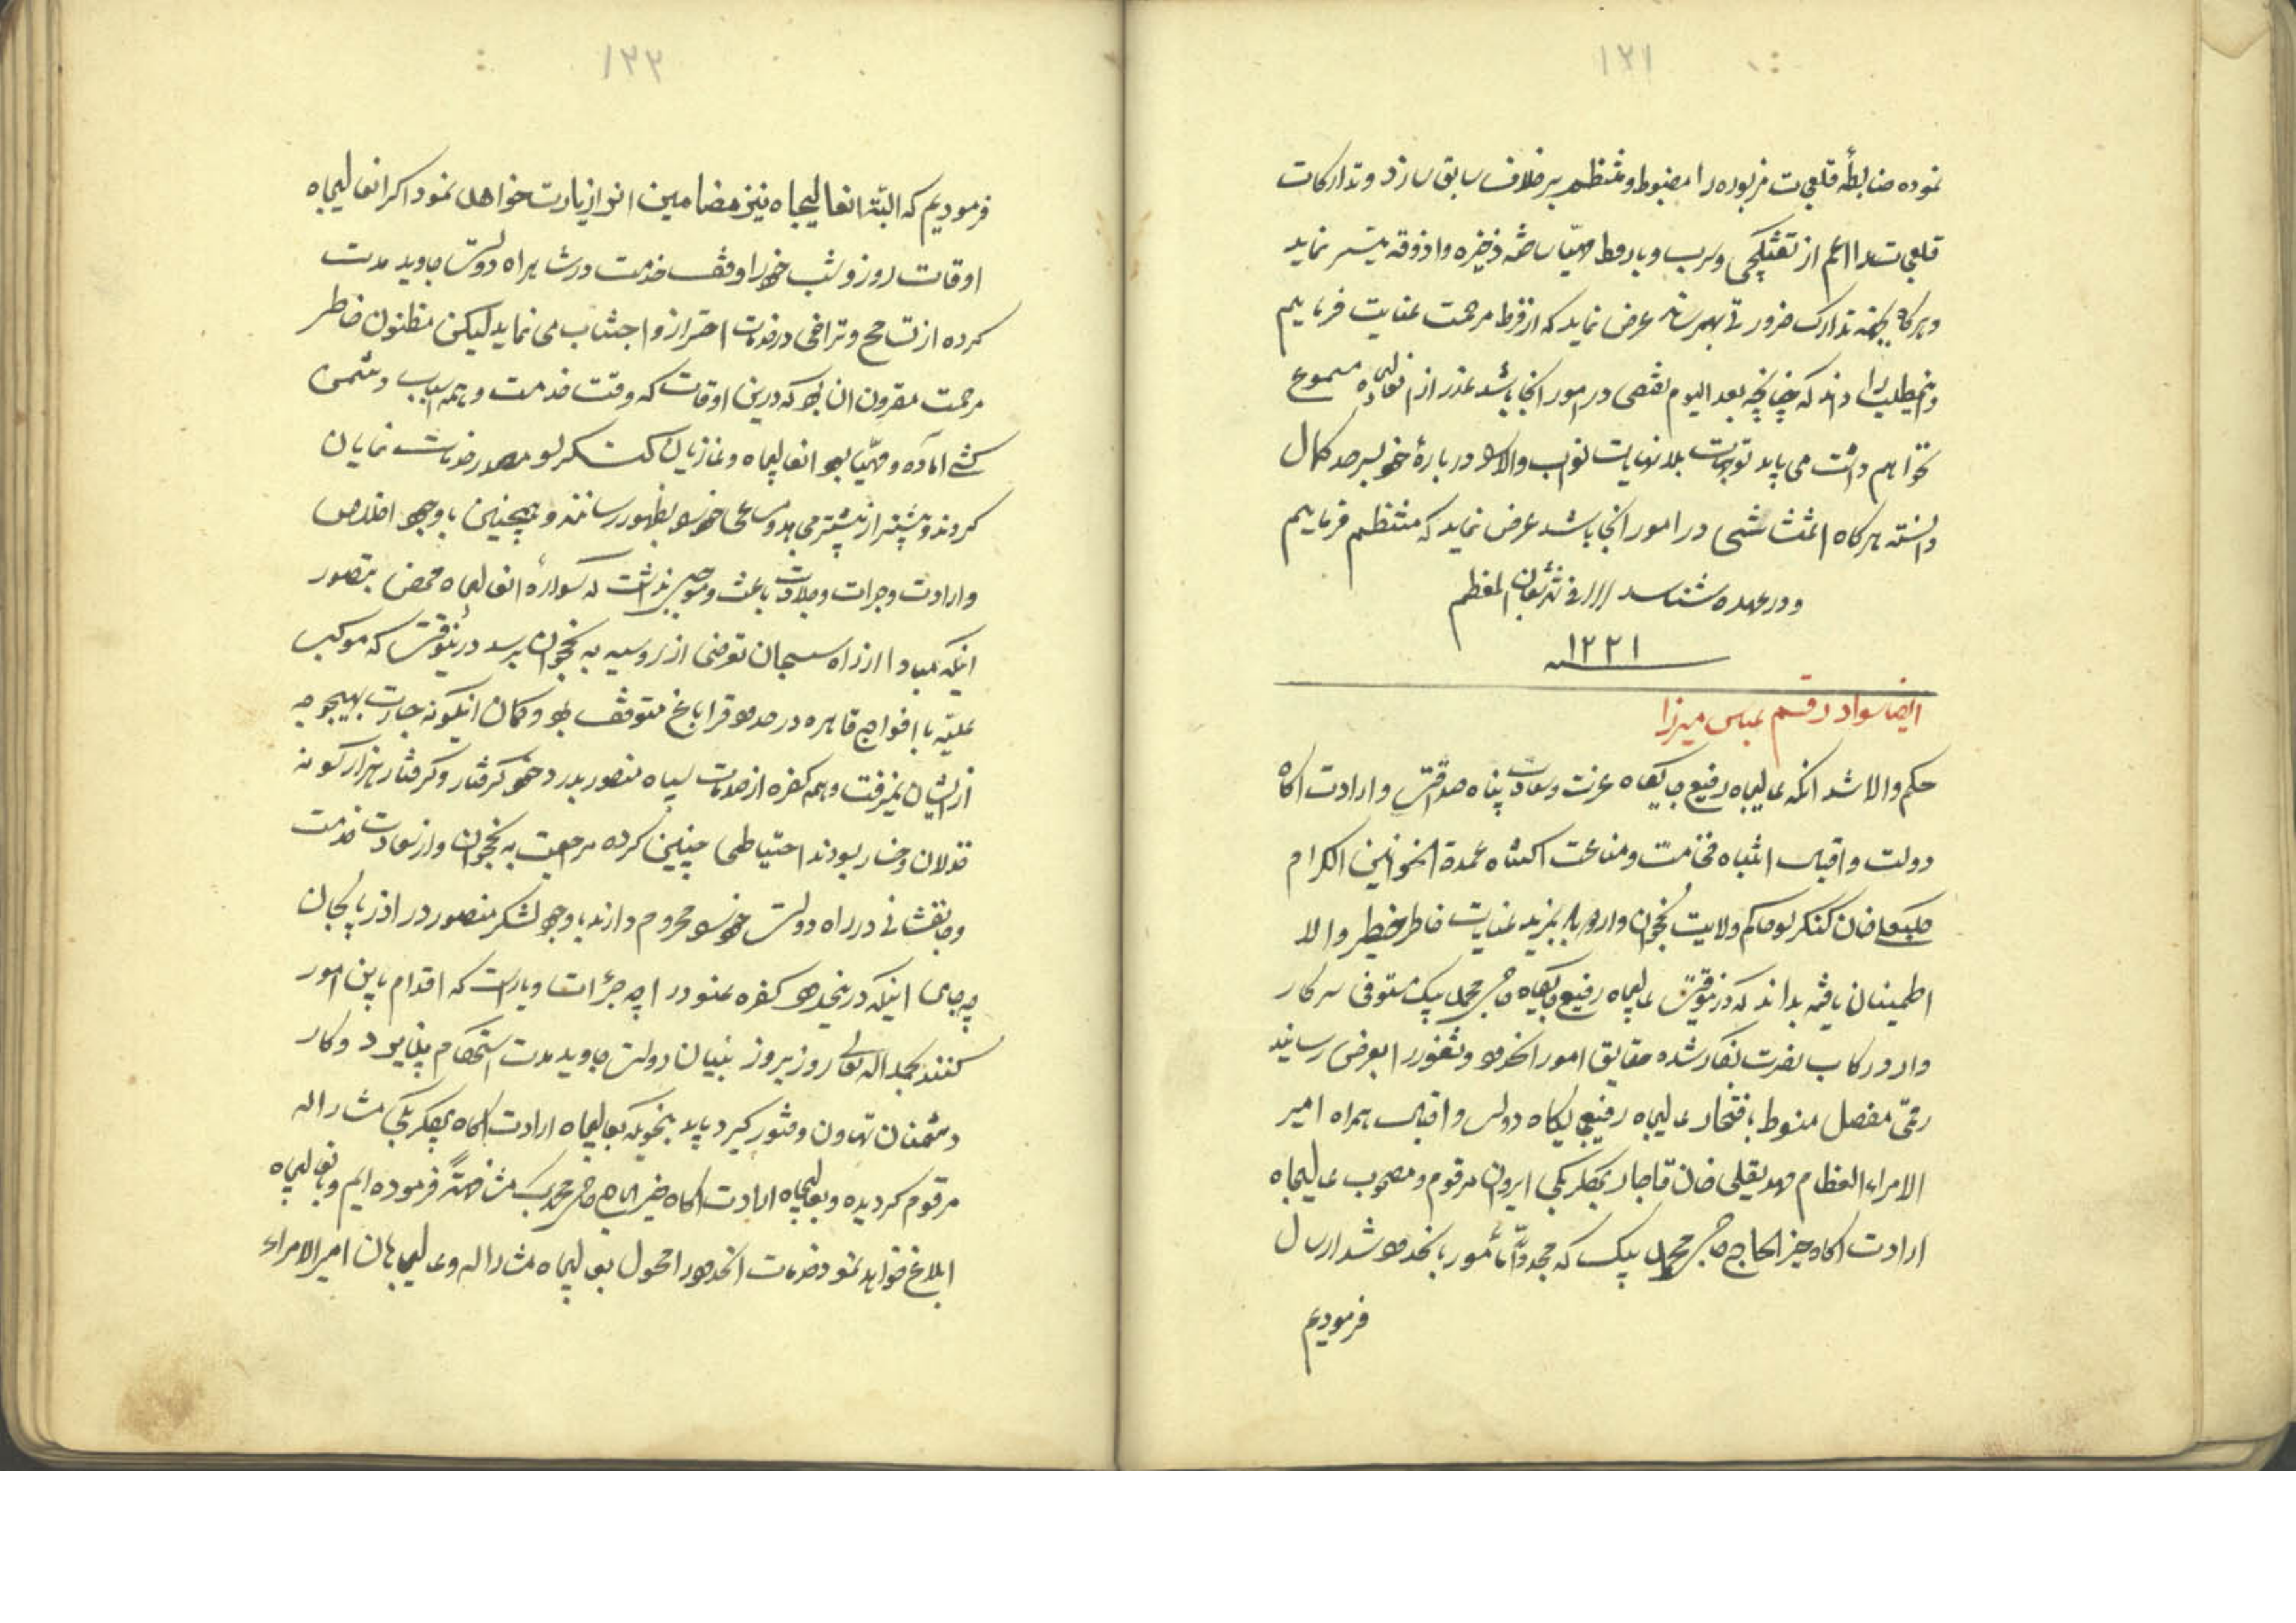 ۱۲۱
نموده ضابطهٔ قلعجات مزبوره را مضبوط و منتظم بر خلاف سابق سازد و تدارکات
قلعجات را اعم از تفنکچی و سرب و باروط مهیا ساخته ذخیره و اذوقه میسر نماید
و هرکاه تدارک ضرور عرض نماید که از فرط مرحمت عنایت فرماییم
و اینمطلب را داند که چنانچه بعد الیوم نقصی در امور انجا باشد عذر از انعالیجاه مسموع
نخواهیم داشت می باید توجهات بلانهایات نواب والا را درباره خود بسرحد کمال
دانسته هرکاه اغتشاشی در امور انجا باشد عرض نماید که منتظم فرماییم
و در عهده شناسد فی شهر شعبان المعظم
۱۲۲۱
ایضا سواد رقم عباس میرزا
حکم والا شد انکه عالیجاه رفیع جایکاه عزت و سعادت پناه صداقت و ارادت اکاه
دولت و اقبال انتباه فخامت و مناعت اکتناه عمدة الخوانین الکرام
خان کنکرلو حاکم ولایت نخجوان بمزید عنایت خاطر خطیر والا
اطمینان یافته بداند که درینوقت عالیجاه رفیع جایکاه حاجی محمد بیک مستوفی سرکار
وارد رکاب نصرت شده حقایق امور انحدود و ثغور را بعرض رسانید
رقمی مفصل منوط بافتخار عالیجاه رفیع جایکاه دولت و اقبال همراه امیر
الامراء العظام مهدیقلی خان قاجار بیکلربیکی ایروان مرقوم و مصحوب عالیجاه
ارادت اکاه خیر الحاج حاجی محمد بیک که مجددا مأمور بانحدود شد ارسال
فرمودیم
۱۲۲
فرمودیم که البته انعالیجاه نیز مضامین انرا زیارت خواهد نمود اکر انعالیجاه
اوقات روز و شب خود را وقف خدمت در شاهراه دولت جاوید مدت
کرده از تسامح و تراخی در خدمات احتراز و اجتناب می نماید لیکن مظنون خاطر
مرحمت مقرون ان بود که درین اوقات که وقت خدمت و همه اسباب دشمن
کشی اماده و مهیا بود انعالیجاه و غازیان کنکرلو مصدر خدمات نمایان
کردند و بیشتر از پیشتر جد و مساعی خود بظهور رسانند و همچنین با وجود اخلاص
و ارادت و جرات و جلادت باعث و موجبی نداشت که سواره انعالیجاه محض بتصور
اینکه مبادا از راه سیسجان تعرضی از روسیه به نخجوان برسد درینوقت که موکب
علیه با افواج قاهره در حدود قراباغ متوقف بود و کمان اینکونه جسارت بهیچوجه
از ایشان نمیرفت و همه کفره از صدمات سپاه منصور بدرد خود کرفتار و کرفتار هزار کونه
خذلان و خسار بودند احتیاطی چنین کرده مراجعت به نخجوان و از سعادت خدمت
و جانفشانی در راه دولت خود را محروم دارند با وجود لشکر منصور در اذربایجان
چه جای اینکه در انحدود کفره عنود را چه جرأت و یاراست که اقدام باین امور
کنند بحمد اله تعالی روز بروز بنیان دولت جاوید مدت استحکام پذیرد و کار
دشمنان تهاون و فتور کیرد باید بنحویکه بعالیجاه ارادت اکاه بیکلربیکی مشارالیه
مرقوم کردیده و بعالیجاه ارادت اکاه خیر الحاج حاجی محمد بیک مشافهةً فرموده ایم و بانعالیجاه
ابلاغ خواهد نمود خدمات انحدود را محول بعالیجاه مشارالیه و عالیجاهان امیرالامراء